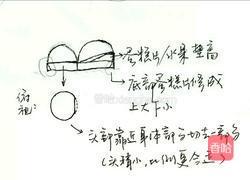 蛋糕片/水果垫高
底部蛋糕片修成
上大下小
俯视:
头部靠近身体部分切去一部分
(头稍小,比例更合适)
香哈